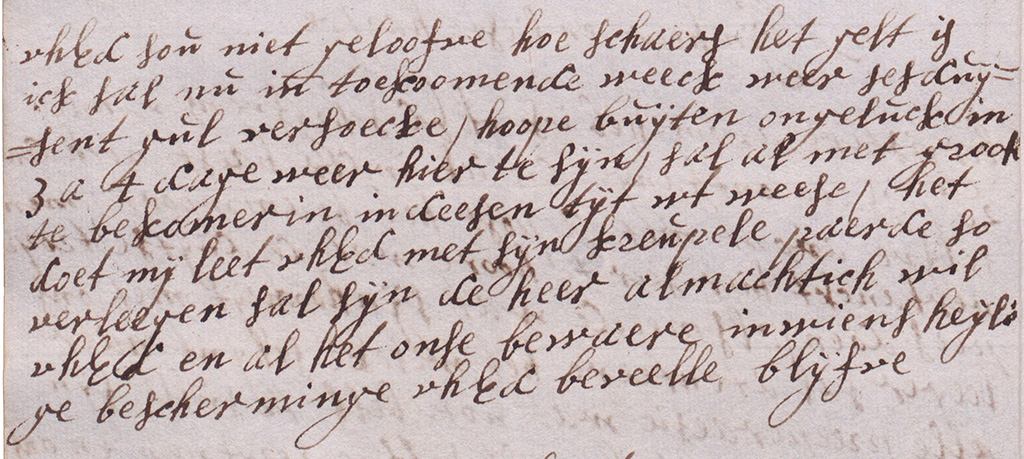 uhEd sou niet geloofve hoe schaers het gelt is
ick sal nu in toekoomende weeck weer sesduy=
=sent gul versoecke / hoope buyten ongeluck in
3 a 4 dage weer hier te syn / sal al met groote
te bekomerin in deesen tyt wt weese / het
doet my leet uhEd met syn kreupele paerde so
verleegen sal syn de heer almachtich wil
uhEd en al het onse bewaere in wiens heyli
ge bescherminge uhEd beveelle blyfve